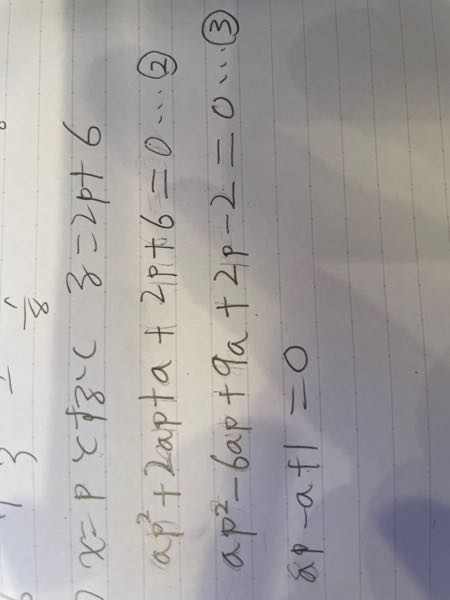 x=p とすると z=2p+6
ap²+2ap+a+2p+6=0…②
ap²-6ap+9a+2p-2=0…③
ap-a+1=0